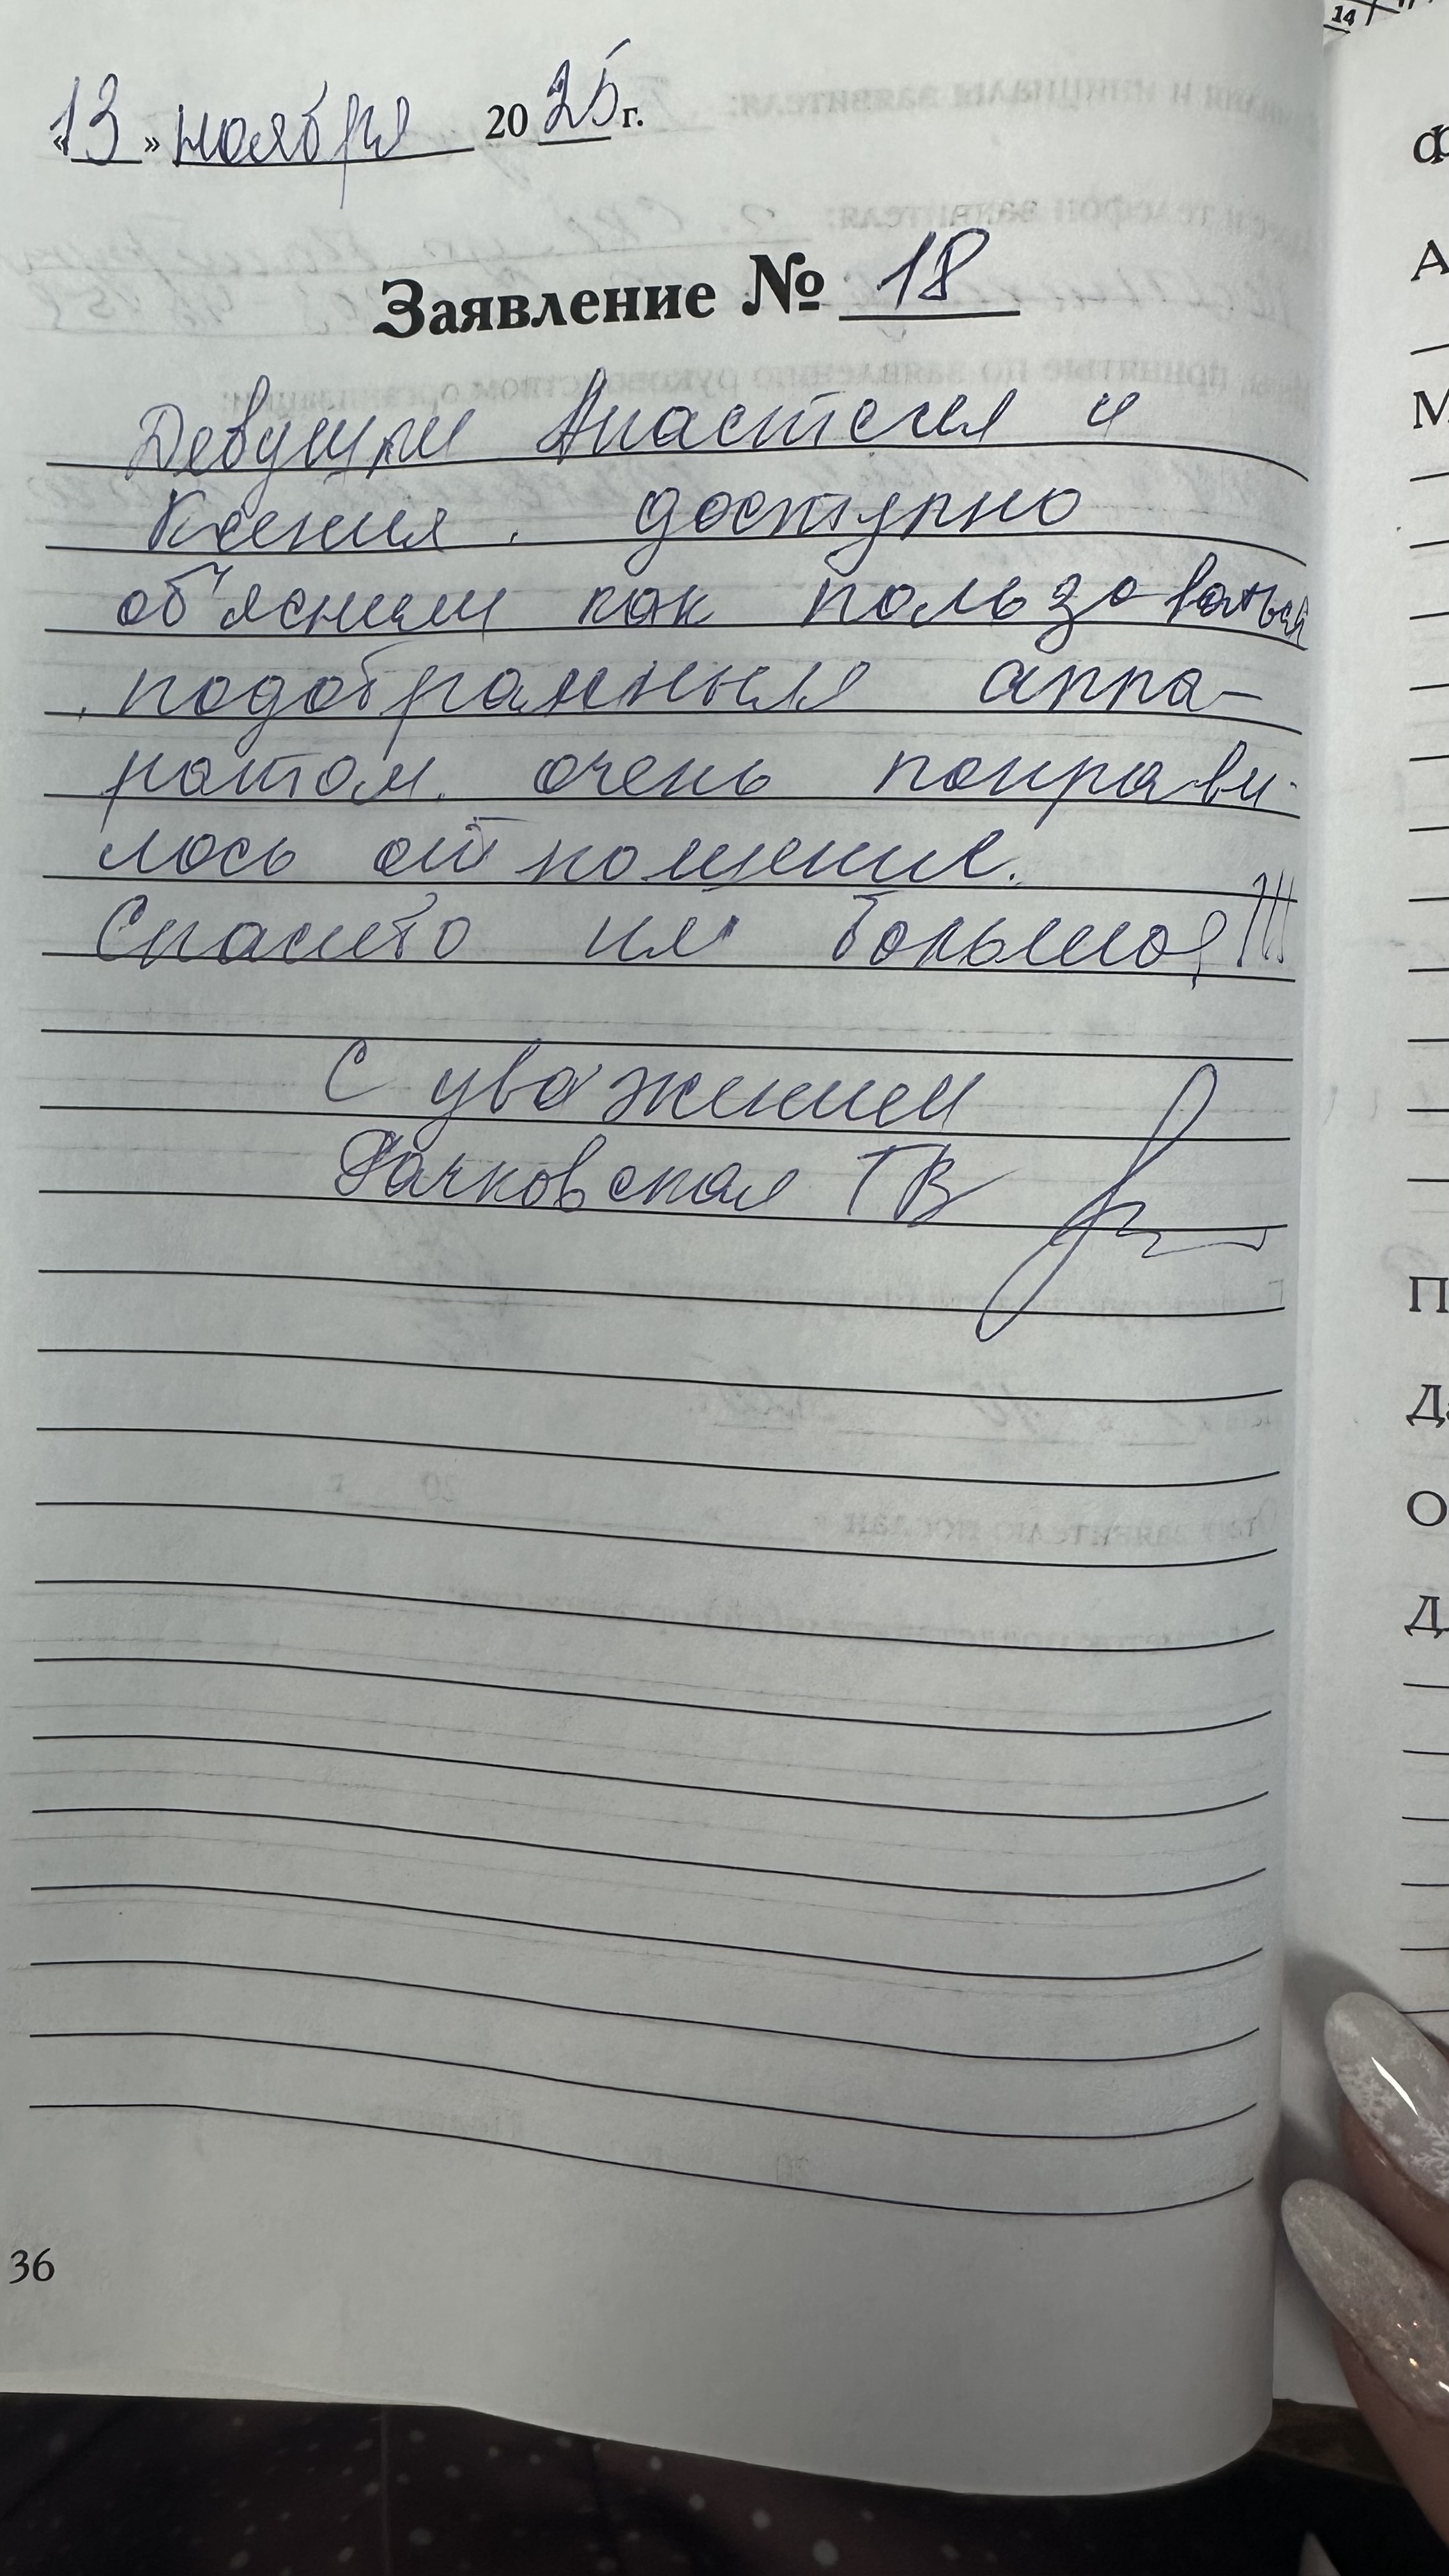 «13» ноября 2025 г.
Заявление № 18
Девушки Анастасия и
Ксения. доступно
об'яснили как пользоваться
подобранным аппа-
ратом. очень понрави-
лось отношение.
Спасибо им большое!!!
С уважением
Рачковская ТВ
36
14
А
М
П
О
Д